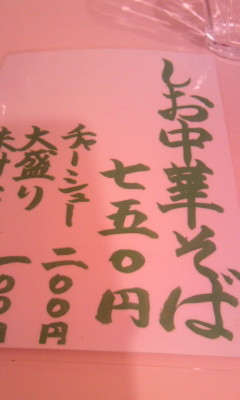 しお中華そば
七五〇円
チャーシュー 二〇〇円
大盛り 一〇〇円